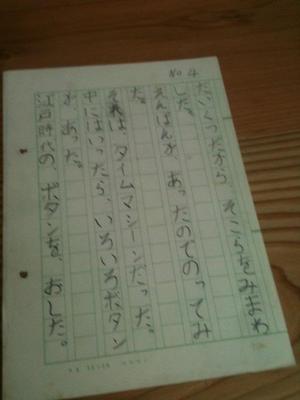 No 4
たいくつだから、そこらをみまわ
した。
えんばんが、あったのでのってみ
た。
それは、タイムマシーンだった。
中にはいったら、いろいろボタン
が、あった。
江戸時代の、ボタンを、おした。